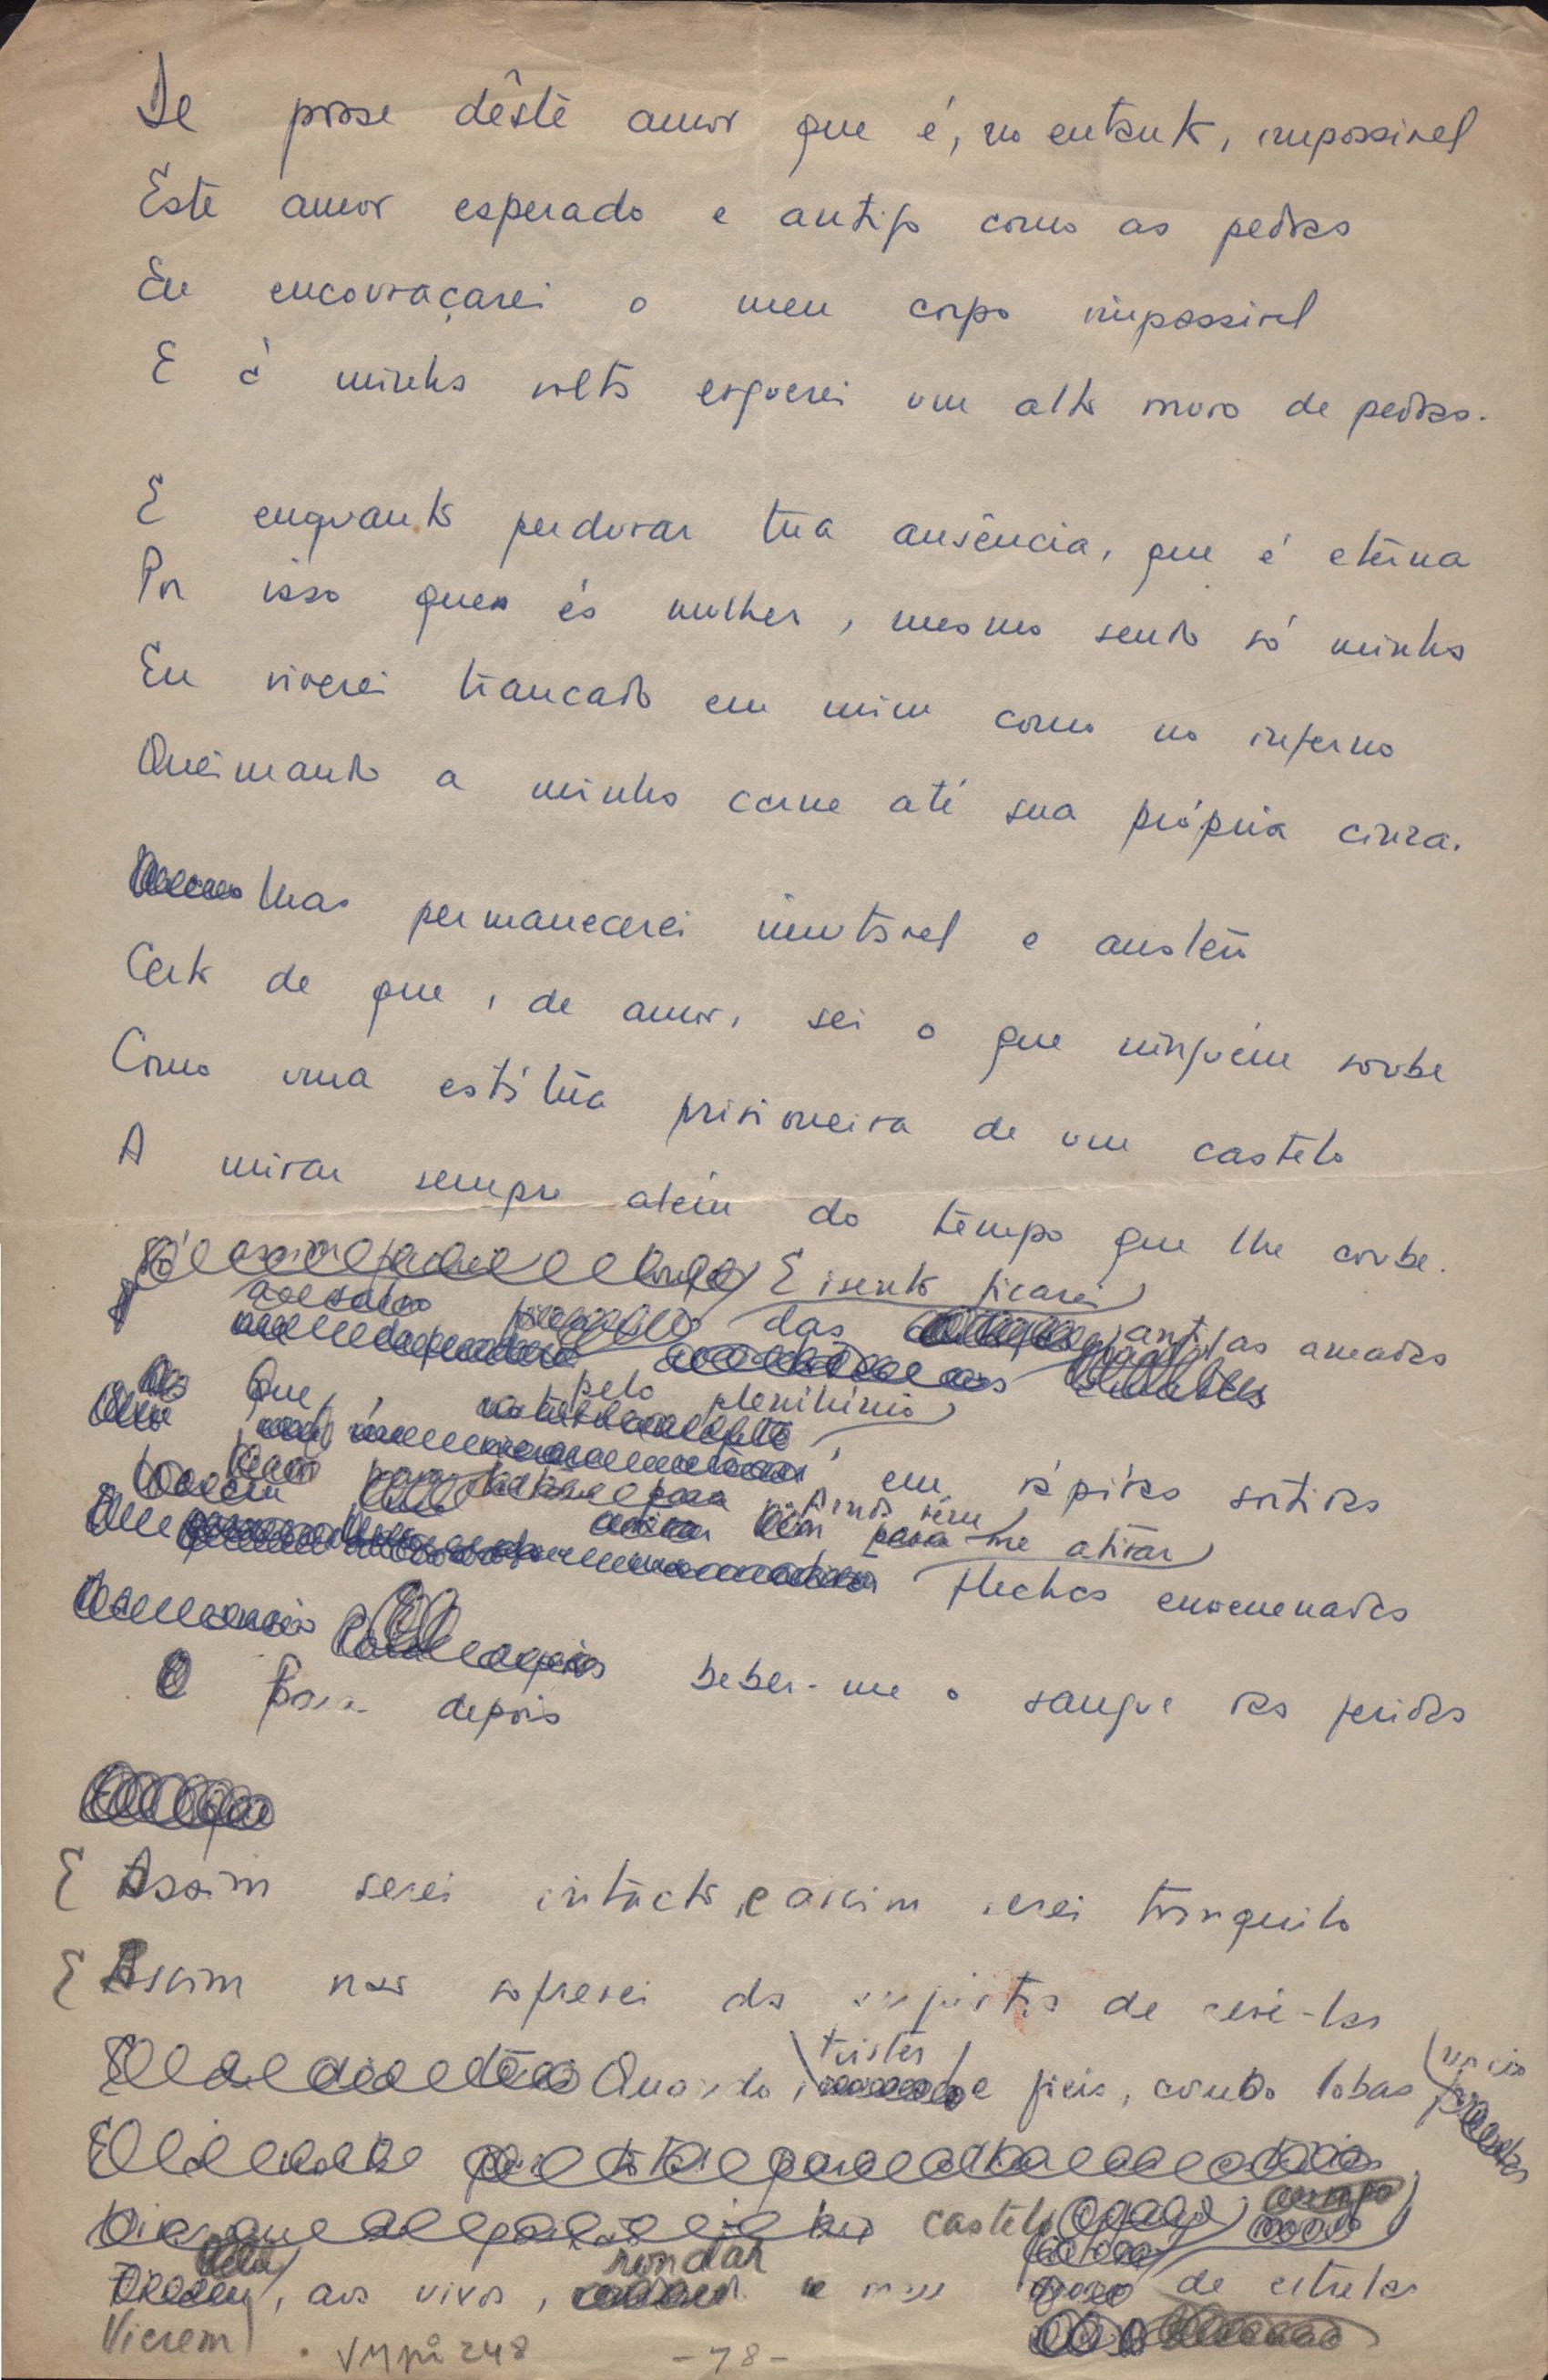 De posse dêste amor que é, no entanto, impossivel
Este amor esperado e antigo como as pedras
Eu encouraçarei o meu corpo impassivel
E à minha volta erguerei um alto muro de pedras.
E enquanto perdurar tua ausência, que é eterna
Por isso que és mulher, mesmo sendo só minha
Eu viverei trancado em mim como no inferno
Queimando a minha carne até sua própria cinza.
Mas permanecerei imutável e austero
Certo de que, de amor, sei o que ninguém soube
Como uma estátua prisioneira de um castelo
A mirar sempre além do tempo que lhe coube.
E isento ficarei
das antigas amadas
Que, pelo plenilúnio, em rápidas sortidas
Ainda vêm
me atirar
flechas envenenadas
Para depois beber-me o sangue das feridas
E Assim serei intacto, e assim serei tranquilo
E Assim não sofrerei da angústia de revê-las
Quando, tristes e fieis, como lobas
no cio
castelo
Vierem, aos vivos, rondar o meu de estrelas
VMpi 248
-78-